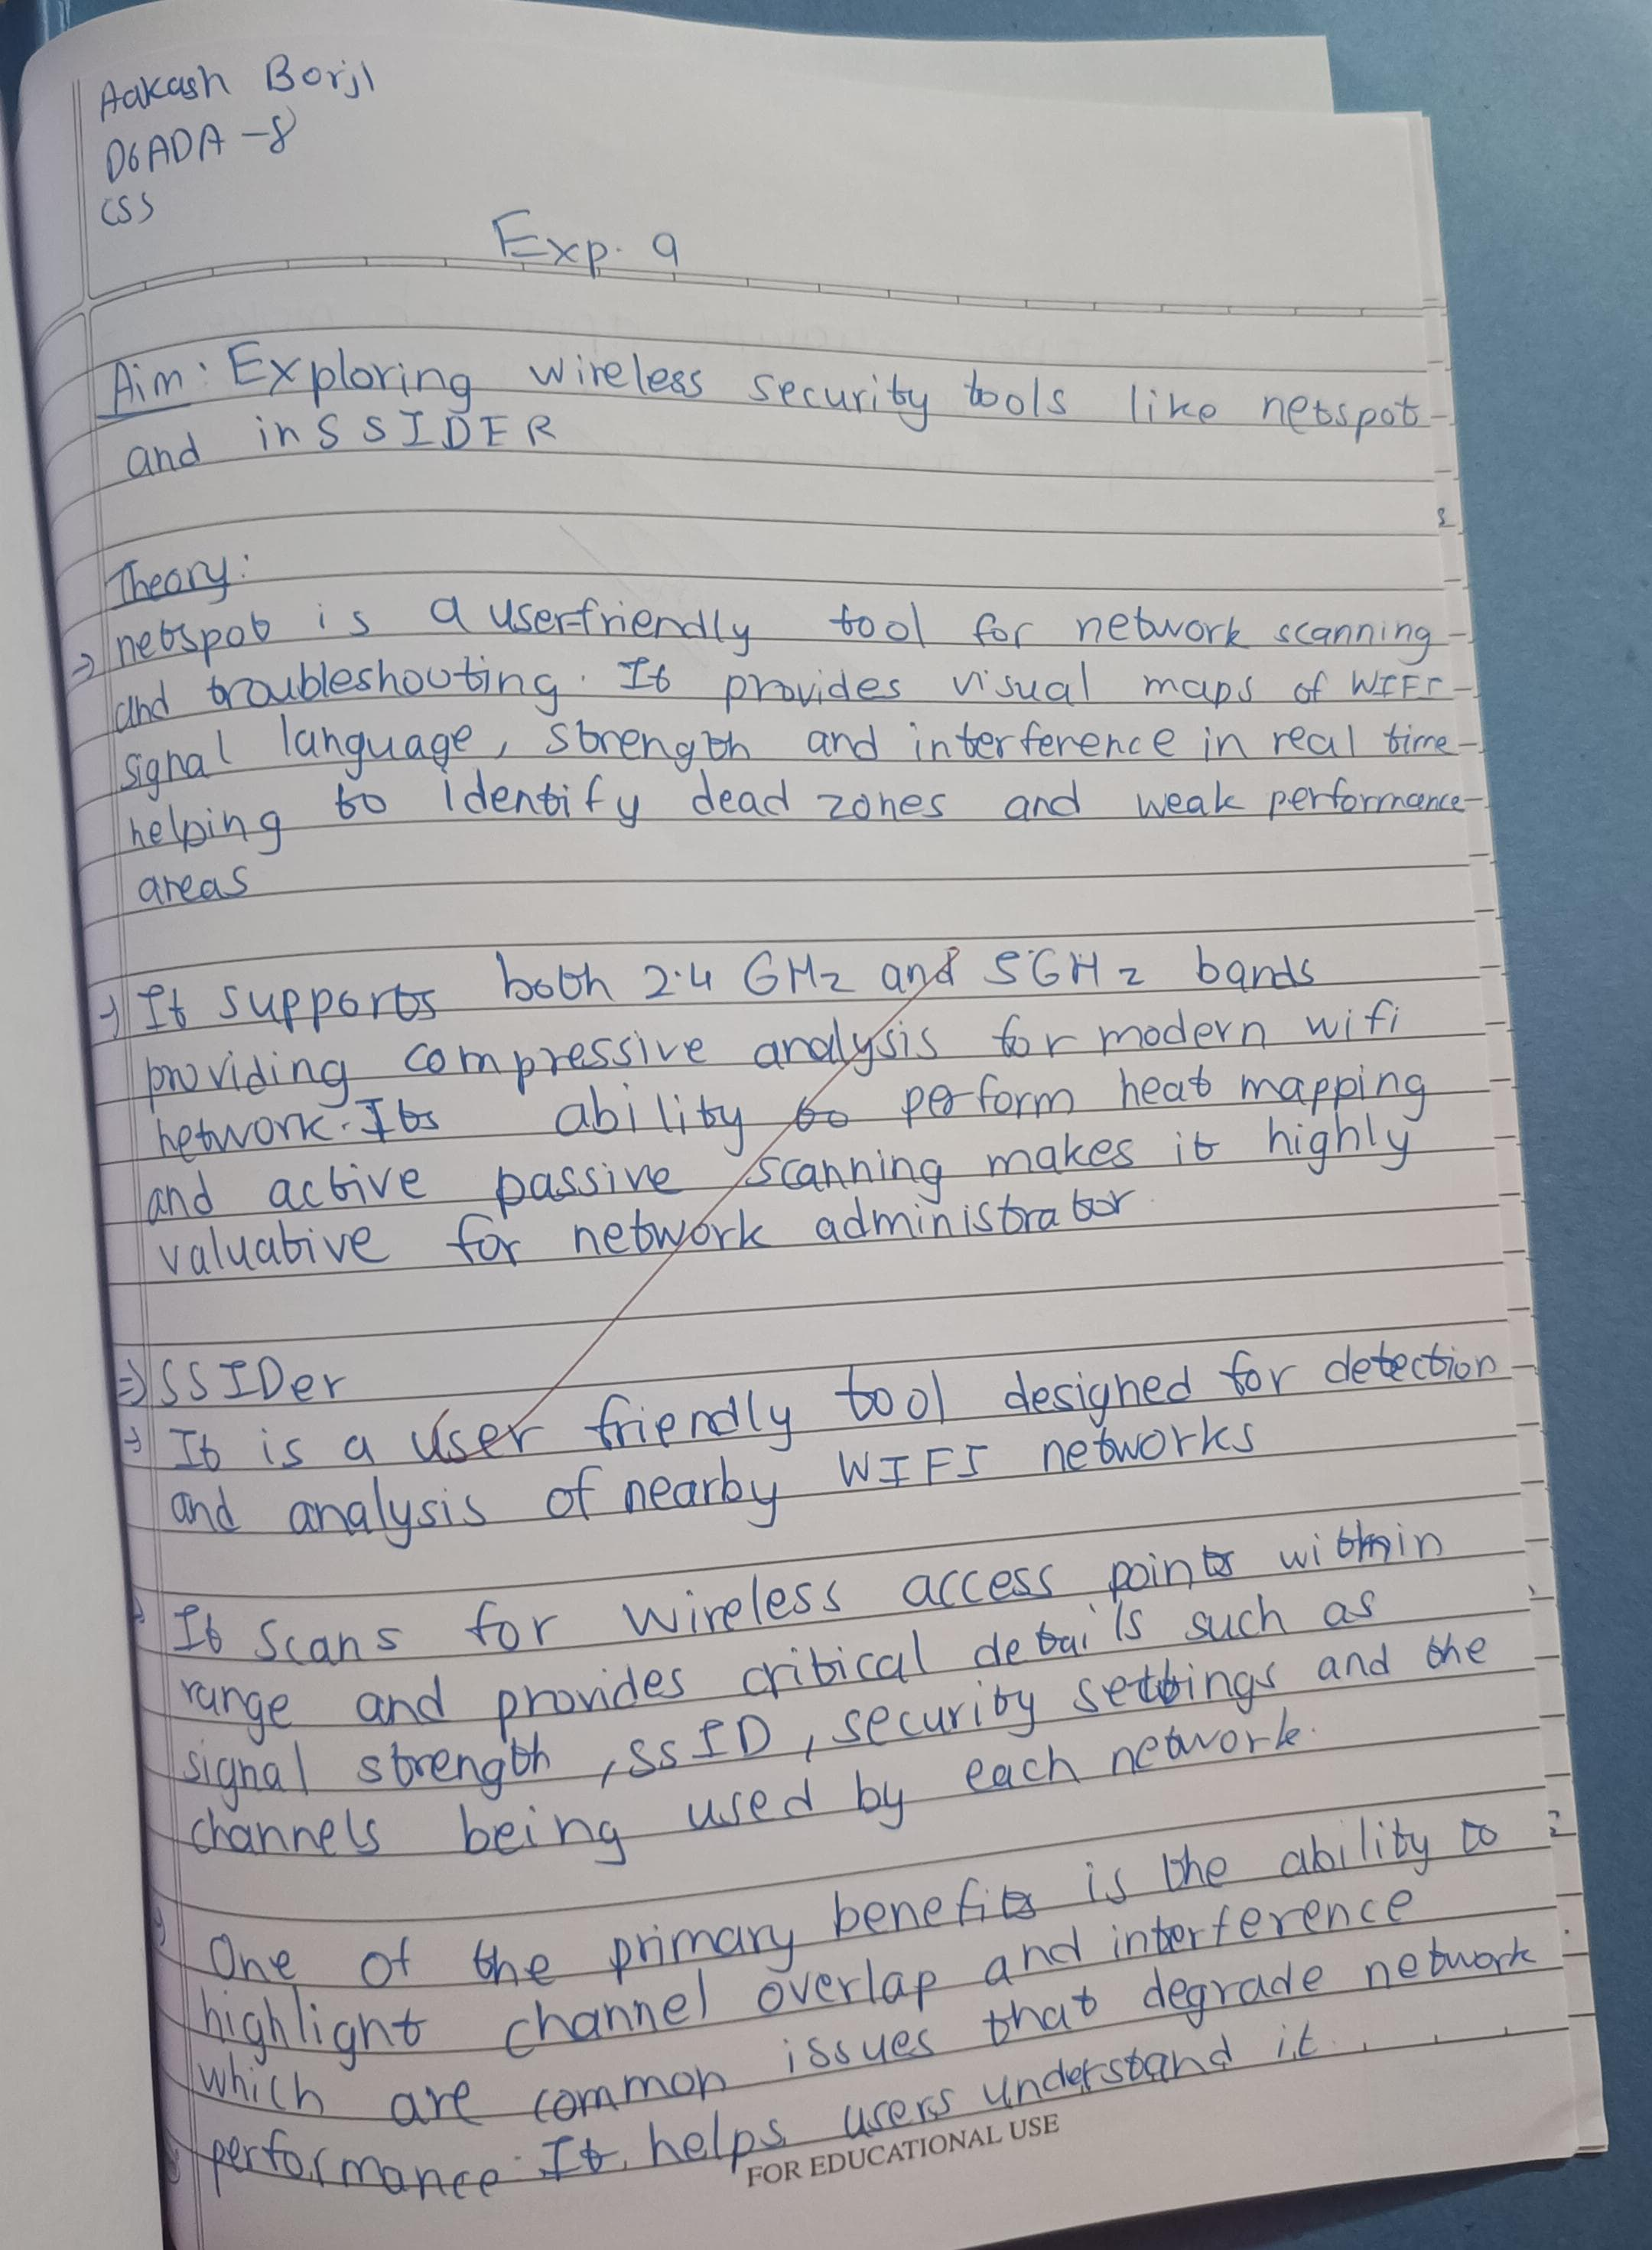 Aakash Borji
D6ADA-8
CSS
Exp. 9
Aim: Exploring wireless security tools like netspot
and inSSIDER
Theory:
→ netspot is a userfriendly tool for network scanning
and troubleshouting. It provides visual maps of WIFI
signal language, strength and interference in real time
helping to identify dead zones and weak performance
areas
→ It supports both 2.4 GHz and 5GHz bands
providing compressive analysis for modern wifi
network. Its ability to perform heat mapping
and active passive scanning makes it highly
valuative for network administrator.
⇒ SSIDer
→ It is a user friendly tool designed for detection
and analysis of nearby WIFI networks
→ It scans for wireless access points within
range and provides critical details such as
signal strength, SSID, security settings and the
channels being used by each network.
→ One of the primary benefits is the ability to
highlight channel overlap and interference
which are common issues that degrade network
performance. It helps users understand it.
FOR EDUCATIONAL USE